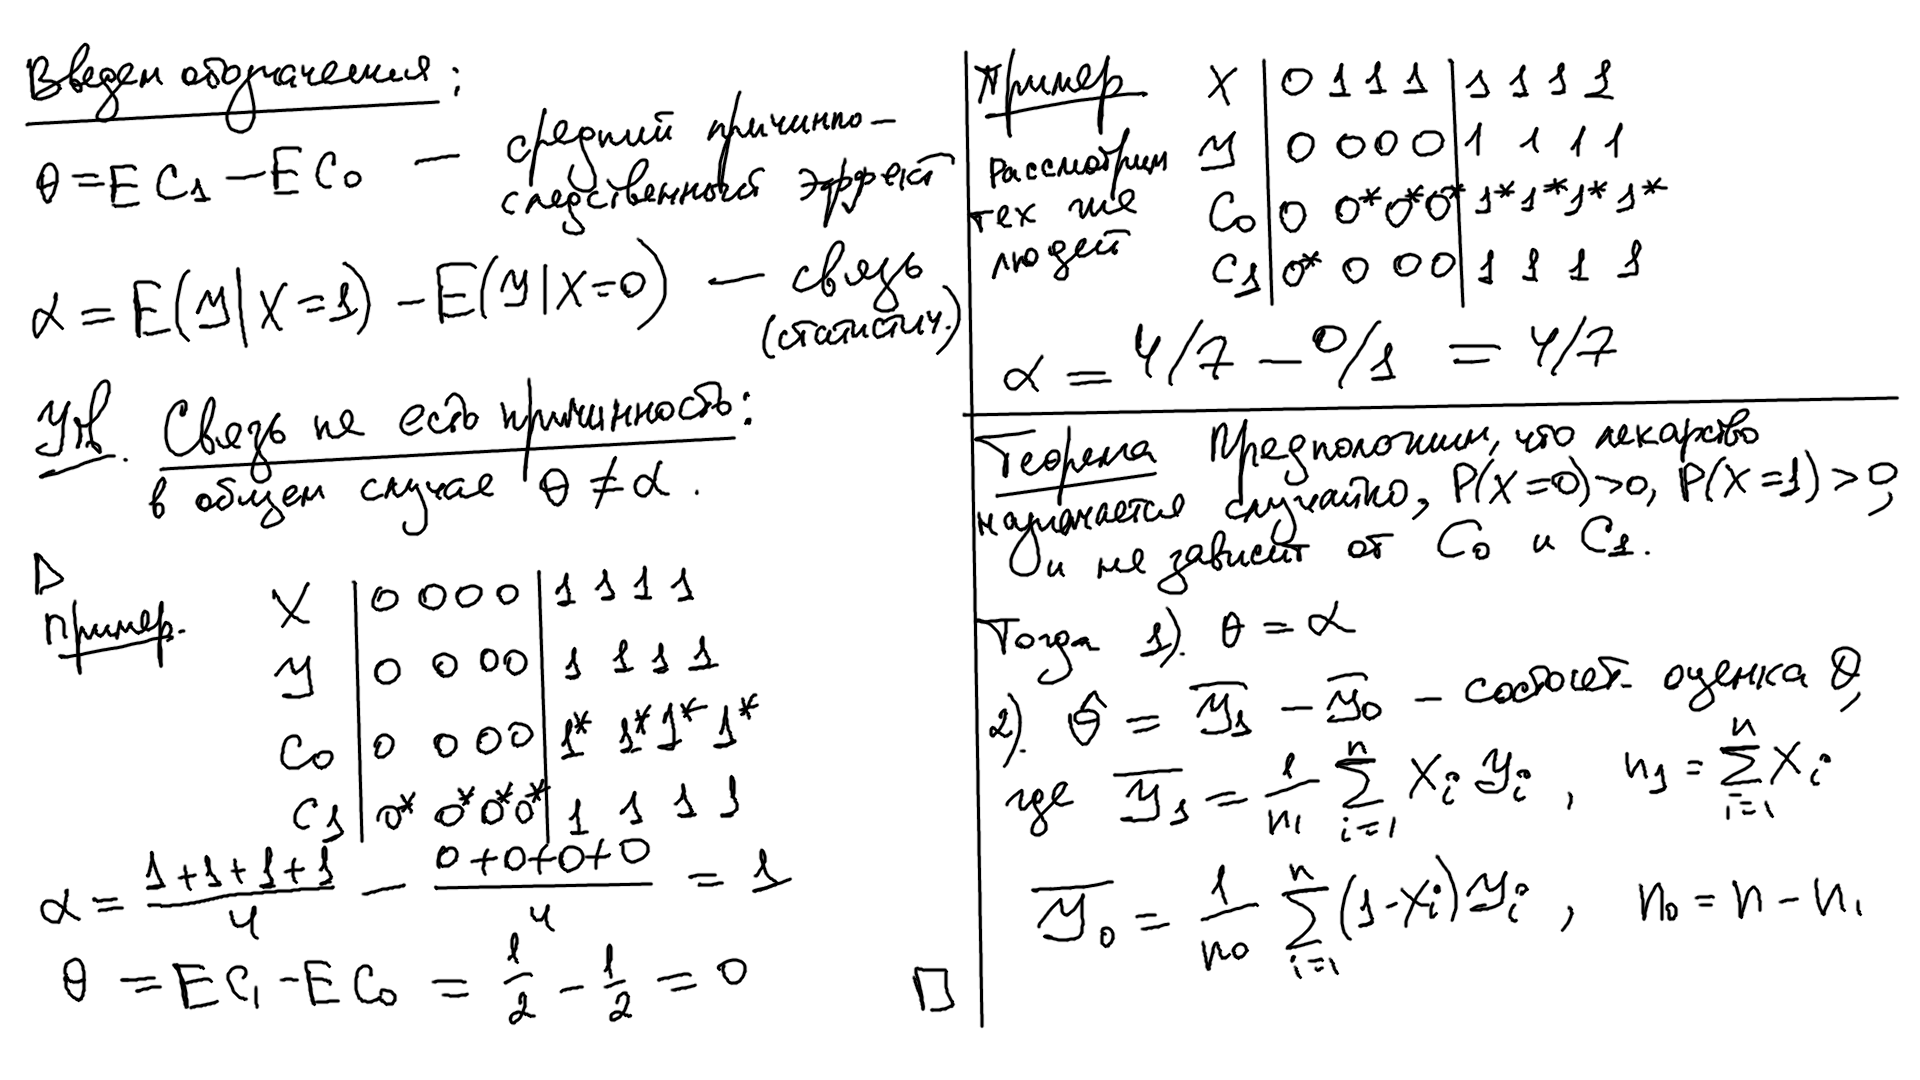 Введем обозначения:
θ = E C₁ − E C₀ — средний причинно-
следственный эффект
α = E(Y|X=1) − E(Y|X=0) — связь
(статистич.)
Утв. Связь не есть причинность:
в общем случае θ ≠ α.
▷
Пример.
X | 0 0 0 0 | 1 1 1 1
Y | 0 0 0 0 | 1 1 1 1
C₀ | 0 0 0 0 | 1* 1* 1* 1*
C₁ | 0* 0* 0* 0* | 1 1 1 1
α = (1+1+1+1)/4 − (0+0+0+0)/4 = 1
θ = E C₁ − E C₀ = 1/2 − 1/2 = 0 □
Пример
Рассмотрим
тех же
людей
X | 0 1 1 1 | 1 1 1 1
Y | 0 0 0 0 | 1 1 1 1
C₀ | 0 0* 0* 0* | 1* 1* 1* 1*
C₁ | 0* 0 0 0 | 1 1 1 1
α = 4/7 − 0/1 = 4/7
Теорема Предположим, что лекарство
назначается случайно, P(X=0)>0, P(X=1)>0,
и не зависит от C₀ и C₁.
Тогда 1). θ = α
2). θ̂ = Y̅₁ − Y̅₀ − состоят. оценка θ,
где Y̅₁ = 1/n₁ ∑ᵢ₌₁ⁿ Xᵢ Yᵢ, n₁ = ∑ᵢ₌₁ⁿ Xᵢ
Y̅₀ = 1/n₀ ∑ᵢ₌₁ⁿ (1−Xᵢ) Yᵢ, n₀ = n − n₁